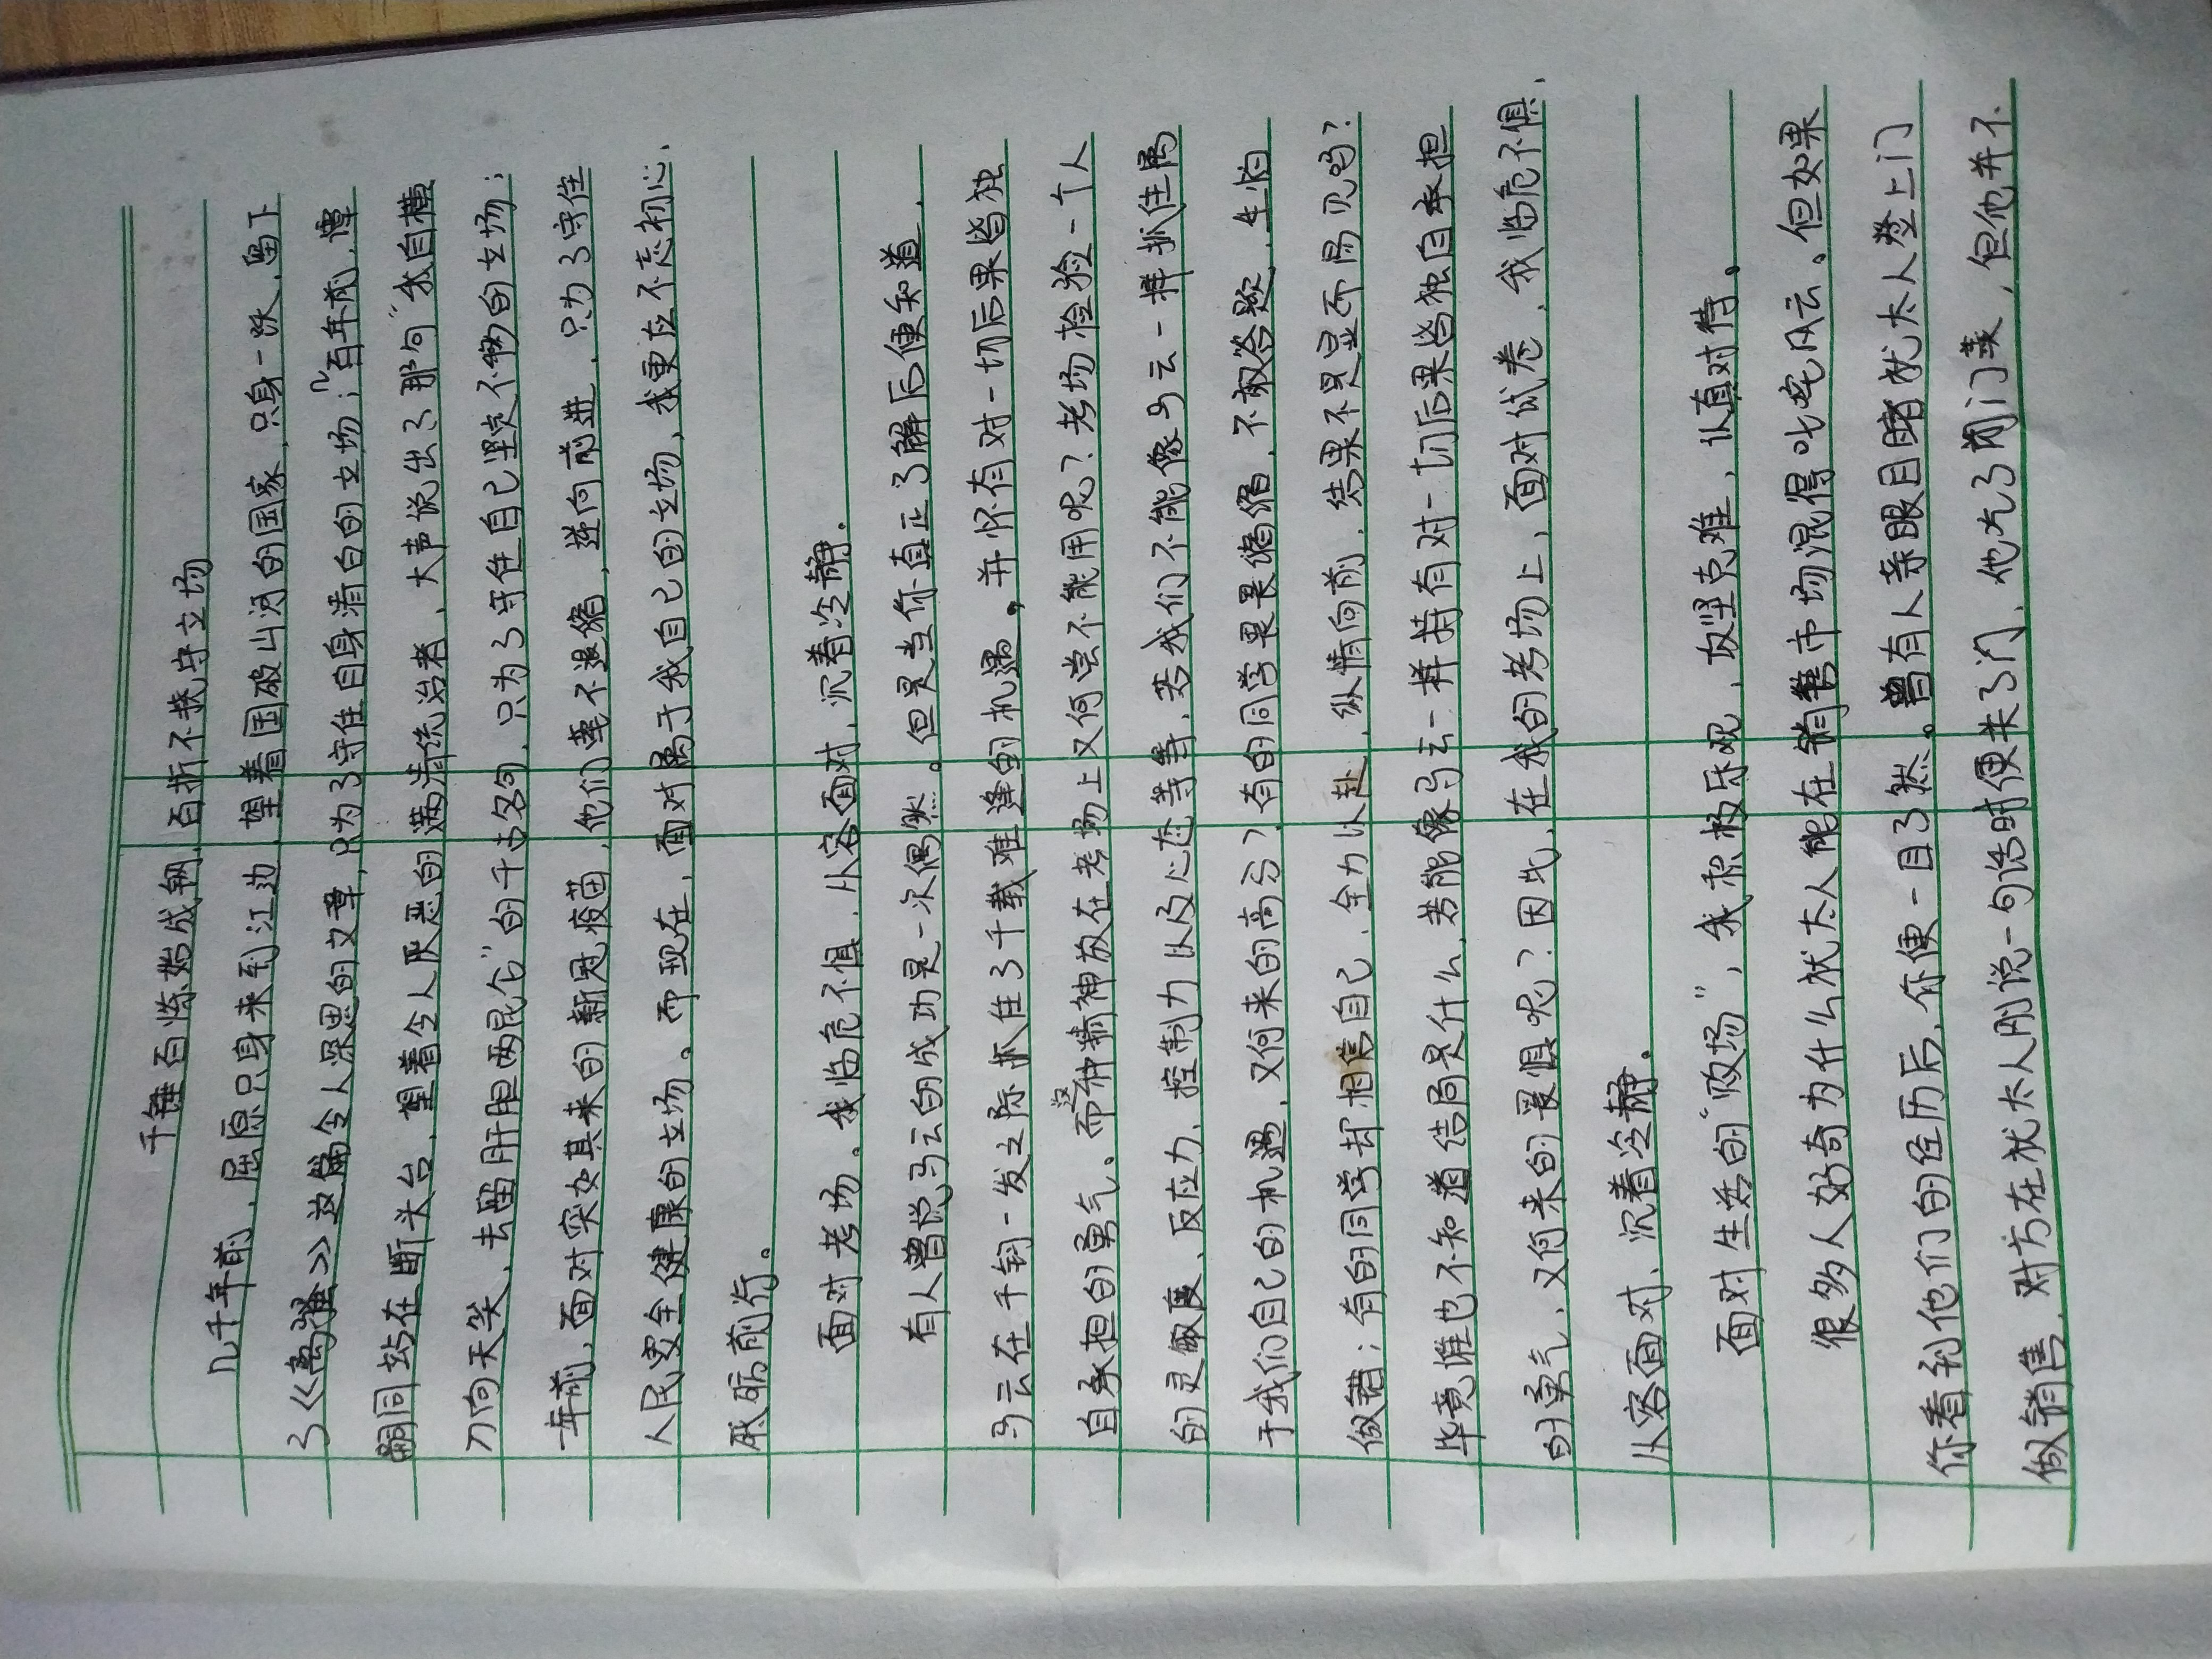 千锤百炼始成钢，百折不挠守立场
几千年前，屈原只身来到江边，望着国破山河的国家，只身一跃，留下
了《离骚》这篇令人深思的文章，只为了守住自身清白的立场；几百年前，谭
嗣同站在断头台，望着令人厌恶的满清统治者，大声说出了那句“我自横
刀向天笑，去留肝胆两昆仑”的千古名句，只为了守住自己坚定不移的立场；
一年前，面对突如其来的新冠疫苗，他们毫不退缩，逆向前进，只为了守住
人民安全健康的立场。而现在，面对属于我自己的立场，我更应不忘初心，
砥砺前行。
面对考场。我临危不惧，从容面对，沉着冷静。
有人曾说马云的成功是一次偶然。但是当你真正了解后便知道，
马云在千钧一发之际抓住了千载难逢的机遇。并怀有对一切后果皆独
自承担的勇气。而这种精神放在考场上又何尝不能用呢？考场检验一个人
的灵敏度、反应力、控制力以及心态等等，若我们不能像马云一样抓住属
于我们自己的机遇，又何来的高分？有的同学畏畏缩缩，不敢答题，生怕
做错；有的同学却相信自己，全力以赴，纵情向前，结果不是显而易见吗？
毕竟谁也不知道结局是什么，若能像马云一样持有对一切后果皆独自承担
的勇气，又何来的畏惧呢？因此，在我的考场上，面对试卷，我临危不惧，
从容面对、沉着冷静。
面对生活的“败场”，我积极乐观，攻坚克难，认真对待。
很多人好奇为什么犹太人能在销售市场混得叱咤风云。但如果
你看到他们的经历后，你便一目了然。曾有人亲眼目睹犹太人登上门
做销售，对方在犹太人刚说一句话时便关了门，他吃了闭门羹，但他并不